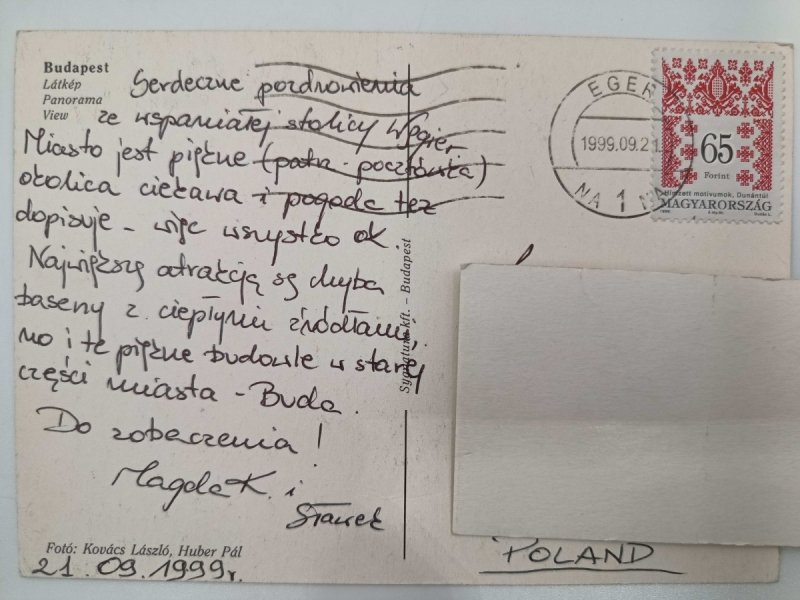 Budapest
Látkép
Panorama
View
Serdeczne pozdrowienia
ze wspaniałej stolicy Węgier
Miasto jest piękne (patrz - pocztówka)
okolica ciekawa i pogoda też
dopisuje - więc wszystko ok.
Największą atrakcją są chyba
baseny z ciepłymi źródłami,
no i te piękne budowle w starej
części miasta - Buda.
Do zobaczenia!
Magda K. i
Sławek
Fotó: Kovács László, Huber Pál
21.09.1999r.
Sygnatura kft. – Budapest
EGER
1999.09.21
1
65
Forint
MAGYARORSZÁG
POLAND